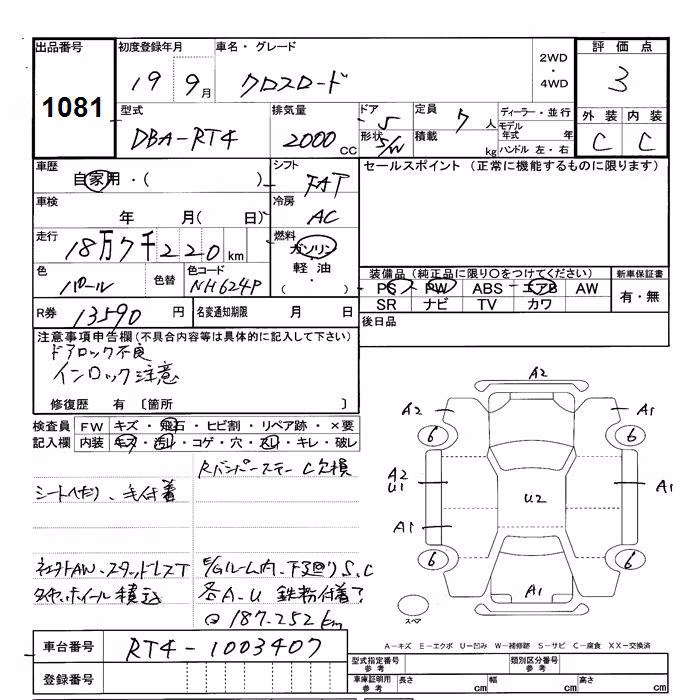 出品番号 初度登録年月 車名・グレード 2WD・4WD 評価点
1081 19 9月 クロスロード 3
型式 排気量 ドア 5 定員 7人 ディーラー・並行 外装 内装
DBA-RT4 2000CC 形状 S/W 積載 kg モデル年式 年 C C
ハンドル 左・右
車歴 シフト セールスポイント (正常に機能するものに限ります)
自家用・( ) FAT
車検 冷房
年 月(日) AC
走行 燃料
18万7千220km ガソリン
軽油
色 色替 色コード ・( ) 装備品(純正品に限り○をつけてください) 新車保証書
パール NH624P PS PW ABS エアB AW 有・無
SR ナビ TV カワ
R券 13590円 名変通知期限 月 日 後日品
注意事項申告欄(不具合内容等は具体的に記入して下さい)
ドアロック不良
インロック注意
修復歴 有〔箇所 〕
検査員 FW キズ・飛石・ヒビ割・リペア跡・×要
記入欄 内装 キズ・汚れ・コゲ・穴・スレ・キレ・破レ
Rバンパーステー C欠損
シートヘタリ、毛付着
AW、スタッドレスT
タイヤ、ホイール積込
E/Gルーム内、下廻りS、C
各A、U 鉄粉付着
187.252km
A2
A2 A1
6 6
A2
U1 U2 A1
A1
6 6
A1
スペア
A-キズ E-エクボ U-凹み W-補修跡 S-サビ C-腐食 XX-交換済
車台番号 RT4-1003407
登録番号
型式指定番号 参考 類別区分番号 参考
車庫証明用 参考 長さ cm 幅 cm 高さ cm